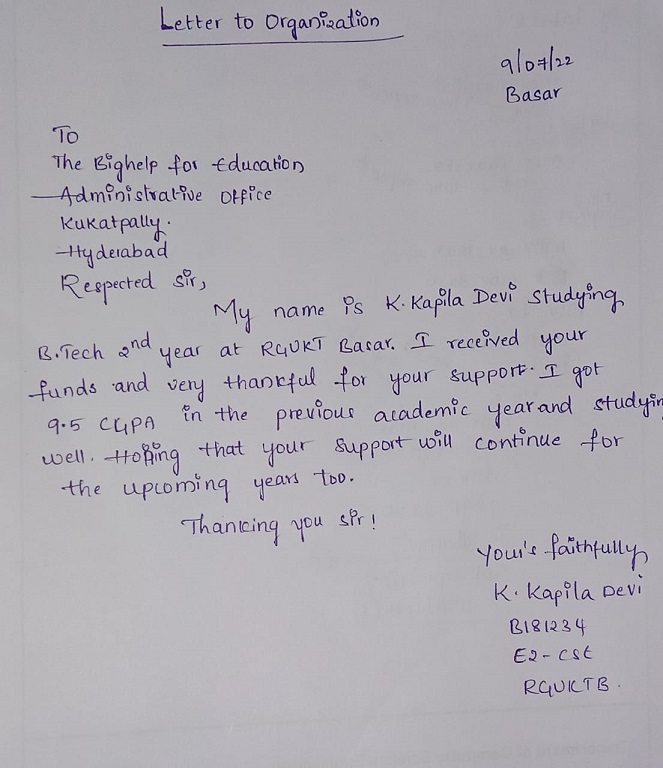 Letter to Organization
9/07/22
Basar
To
The Bighelp for Education
Administrative Office
Kukatpally.
Hyderabad
Respected Sir,
My name is K. Kapila Devi studying
B.Tech 2nd year at RGUKT Basar. I received your
funds and very thankful for your support. I got
9.5 CGPA in the previous academic year and studyin
well. Hoping that your support will continue for
the upcoming years too.
Thanking you sir!
Your's faithfully,
K. Kapila Devi
B181234
E2-CSE
RGUKTB.